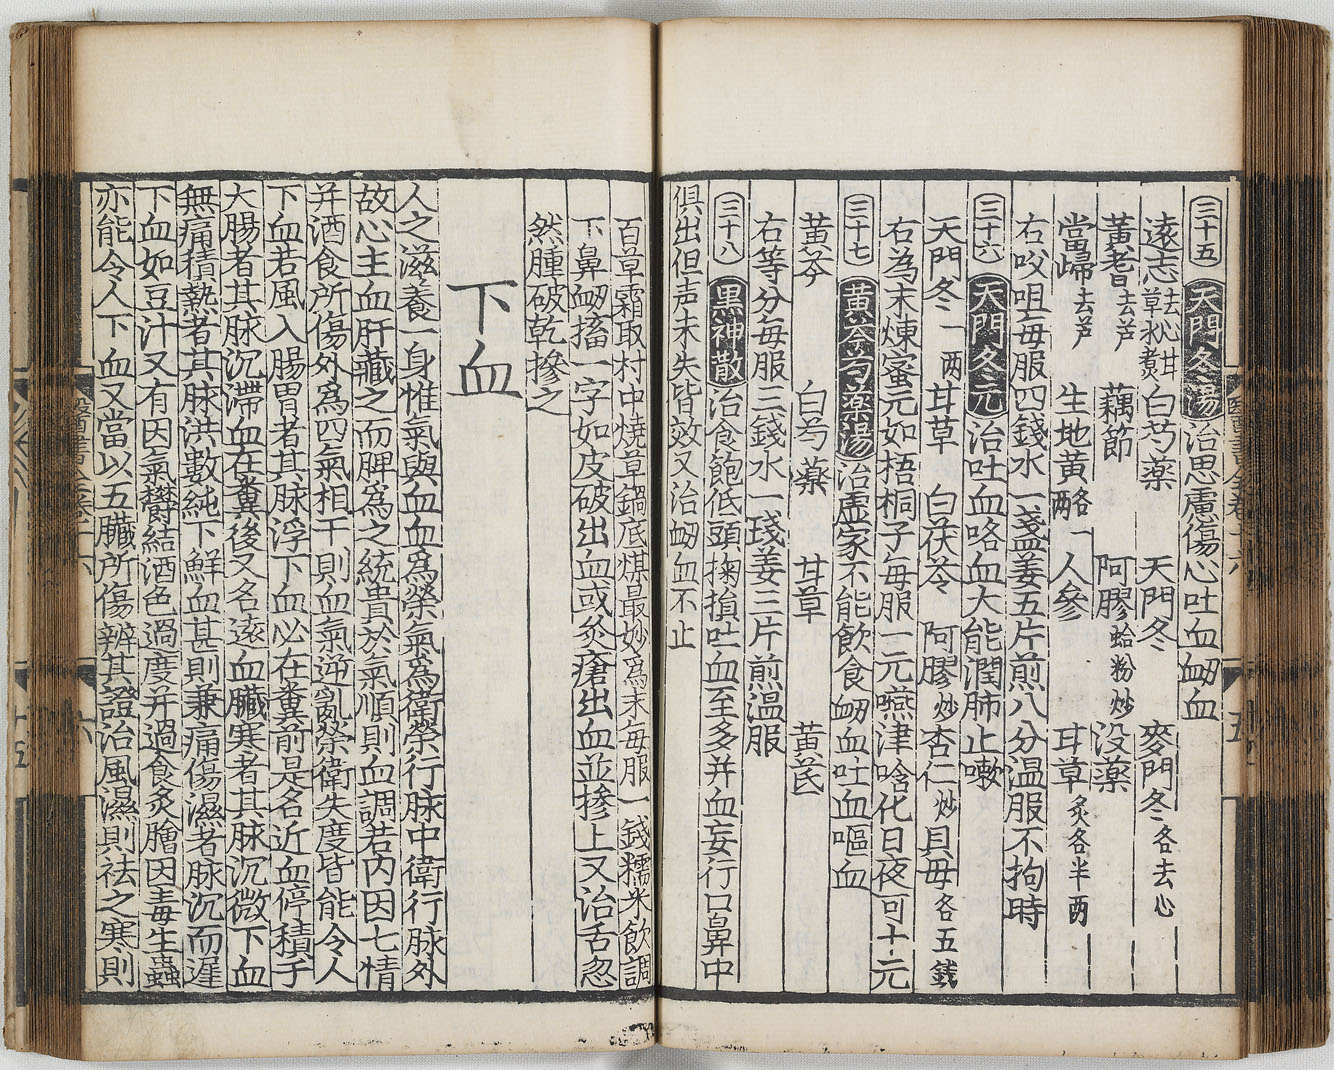 三十五 天門冬湯 治思慮傷心吐血衂血
遠志去心甘草水煑 白芍藥 天門冬 麥門冬各去心
黃耆去芦 藕節 阿膠蛤粉炒 没藥
當歸去芦 生地黃各一两 人參 甘草炙各半两
右㕮咀每服四錢水一盞姜五片煎八分温服不拘時
三十六 天門冬元 治吐血咯血大能潤肺止嗽
天門冬一两 甘草 白茯苓 阿膠炒 杏仁炒 貝母各五錢
右為末煉蜜元如梧桐子每服一元嚥津唅化日夜可十元
三十七 黃芩芍藥湯 治虛家不能飲食衂血吐血嘔血
黃芩 白芍藥 甘草 黃芪
右等分每服三錢水一琖姜三片煎温服
三十八 黑神散 治食飽低頭掬損吐血至多并血妄行口鼻中
俱出但声未失皆效又治衂血不止
百草霜取村中燒草鍋底煤最妙為末每服一錢糯米飲調
下鼻衂搐一字如皮破出血或灸瘡出血並摻上又治舌忽
然腫破乾摻之
下血
人之滋養一身惟氣與血血爲榮氣爲衛榮行脉中衛行脉外
故心主血肝藏之而脾爲之統貴於氣順則血調若内因七情
并酒食所傷外爲四氣相干則血氣逆亂榮衛失度皆能令人
下血若風入腸胃者其脉浮下血必在糞前是名近血停積于
大腸者其脉沉滯血在糞後又名遠血臟寒者其脉沉微下血
無痛積熱者其脉洪數純下鮮血甚則兼痛傷濕者脉沉而遲
下血如豆汁又有因氣欝結酒色過度并過食炙膾因毒生蟲
亦能令人下血又當以五臟所傷辨其證治風濕則祛之寒則